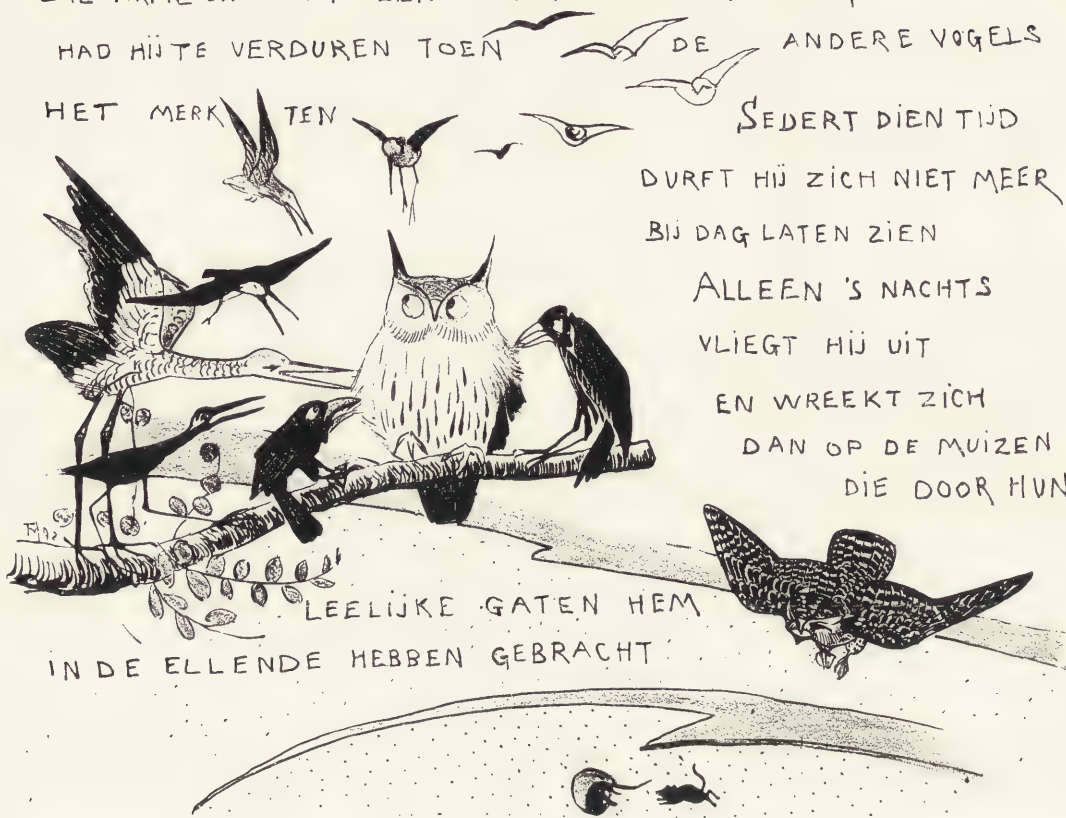 HAD HIJ TE VERDUREN TOEN DE ANDERE VOGELS
HET MERKTEN
SEDERT DIEN TIJD
DURFT HIJ ZICH NIET MEER
BIJ DAG LATEN ZIEN
ALLEEN 'S NACHTS
VLIEGT HIJ UIT
EN WREEKT ZICH
DAN OP DE MUIZEN
DIE DOOR HUN
LEELIJKE GATEN HEM
IN DE ELLENDE HEBBEN GEBRACHT